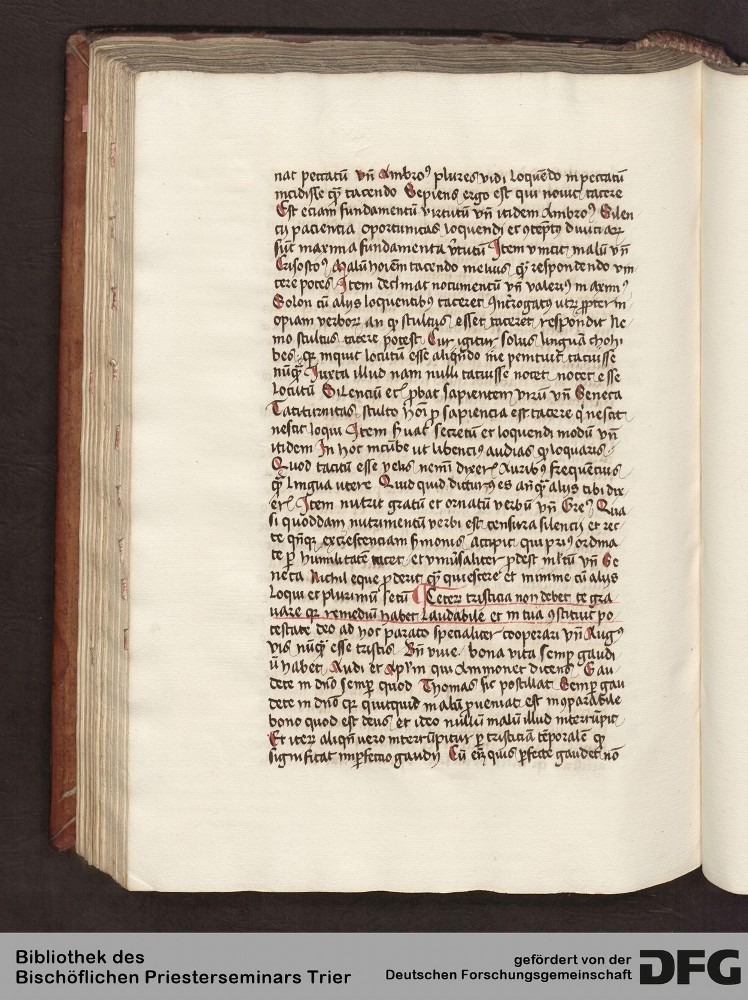 nat peccatū vn̄ Ambroꝰ plures vidi loquēdo in peccatū
incidisse qꝫ tacendo Sepiens ergo est qui nouit tacere
Est eciam fundamentū virtutū vn̄ itidem Ambroꝰ Silen
cij paciencia oportunitas loquendi et ꝯtēptꝯ diuiciaꝝ
sūt maxima fundamenta v̄tutū Item vincit malū vn̄
Crisostoꝰ Malū hoīem tacendo melius qꝫ respondendo vin
cere potes Item declinat nocumentū vn̄ valeriꝰ maximꝰ
Solon cū alijs loquentibꝫ taceret ꝯ
opiam verboꝝ an qꝫ stultus esset taceret respondit Ne
mo stultus tacere potest Cur igitur solus linguā cohi
bes qꝛ inquit locutū esse aliqn̄do me penituit tacuisse
nūqꝫ Iuxta illud nam nulli tacuisse nocet nocet esse
locutū Silenciū et̄ ꝓbat sapientem virū vn̄ Seneca
Taciturnitas stulto hoī ꝓ sapiencia est tacere qꝛ nescit
nescit loqui Item ẜuat secretū et loquendi modū vn̄
itidem In hoc incūbe ut libenciꝰ audias qꝫ loquaris
Quod tacitū esse velis nemī dixeris Auribꝫ frequēcius
qꝫ lingua utere Quid quid dicturꝰ es an̄qꝫ alijs tibi dix
eris Item nutrit gratū et ornatū verbū vn̄ Greꝰ Qua
si quoddam nutrimentū verbi est censura silencij et rec
te qn̄qꝫ excrescenciam ẜmonis accipit qui priꝰ ordina
te ꝑ humilitatē tacet et vniūsaliter ꝓdest mltū vn̄ Se
neca Nichil eque ꝓderit qꝫ quiescere et minime cū alijs
loqui et plurimū secū ¶ Ceterꝫ tristicia non debet te gra
uare qꝛ remediū habet laudabile et in tua ꝯstituit̄ po
testate deo ad hoc parato specialiter cooperari vn̄ Augꝰ
vis nūqꝫ esse tristis Bn̄ viue bona vita semꝑ gaudi
ū habet Audi et Aplm̄ qui Ammonet dicens Gau
dete in dn̄o semꝑ quod Thomas sic postillat Semꝑ gau
dete in dn̄o qꝛ quitquid mali ꝓueniat est incōparabile
bono quod est deus et ideo nullū malū illud interrūpit
Et iterꝫ aliqn̄ vero interrūpitur ꝑ tristiciā tēporalē qꝫ
significat inꝑfectio gaudij Cū eīm quis ꝑfecte gaudet nō
Bibliothek des
Bischöflichen Priesterseminars Trier
gefördert von der
Deutschen Forschungsgemeinschaft
DFG